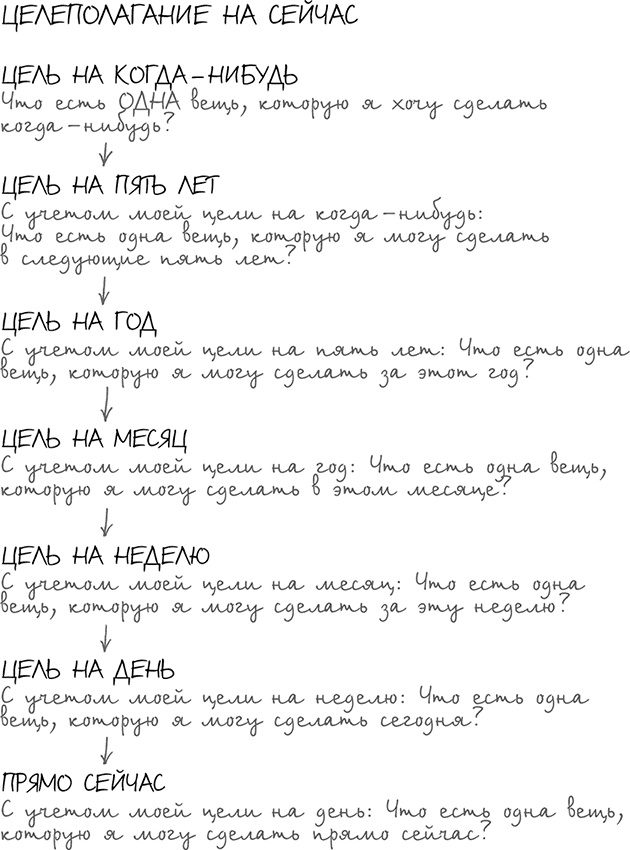 ЦЕЛЕПОЛАГАНИЕ НА СЕЙЧАС
ЦЕЛЬ НА КОГДА-НИБУДЬ
Что есть ОДНА вещь, которую я хочу сделать
когда-нибудь?
ЦЕЛЬ НА ПЯТЬ ЛЕТ
С учетом моей цели на когда-нибудь:
Что есть одна вещь, которую я могу сделать
в следующие пять лет?
ЦЕЛЬ НА ГОД
С учетом моей цели на пять лет: Что есть одна
вещь, которую я могу сделать за этот год?
ЦЕЛЬ НА МЕСЯЦ
С учетом моей цели на год: Что есть одна вещь,
которую я могу сделать в этом месяце?
ЦЕЛЬ НА НЕДЕЛЮ
С учетом моей цели на месяц: Что есть одна
вещь, которую я могу сделать за эту неделю?
ЦЕЛЬ НА ДЕНЬ
С учетом моей цели на неделю: Что есть одна
вещь, которую я могу сделать сегодня?
ПРЯМО СЕЙЧАС
С учетом моей цели на день: Что есть одна вещь,
которую я могу сделать прямо сейчас?